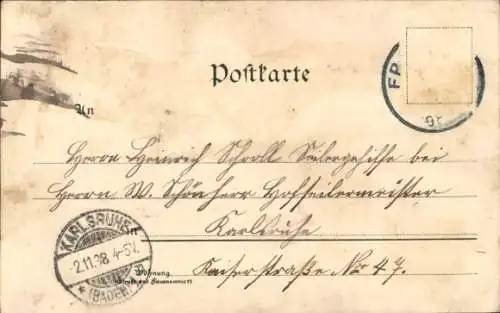 Postkarte
An
Herrn Heinrich Scholl Seilergehilfe bei
Herrn W. Schönherr Hofseilermeister
in Karlsruhe
Kaiserstraße No 47.
Wohnung
(Straße und Hausnummer)
KARLSRUHE
2.11.98 4-5N.
(BADEN)
FR